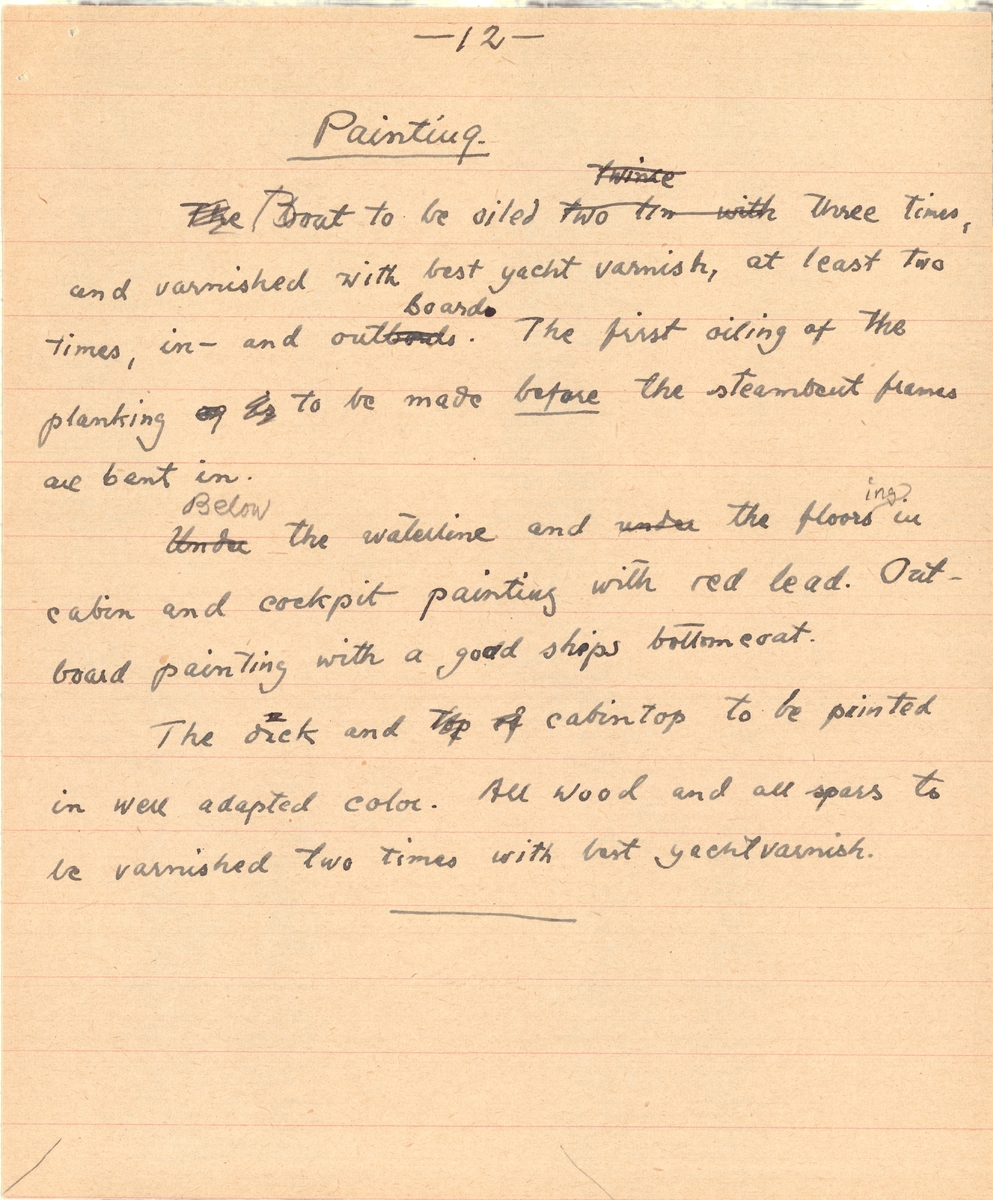 —12—
Painting.
twice
The Boat to be oiled two with three times,
and varnished with best yacht varnish, at least two
Boards
times, in- and outbords. The first oiling of the
planking of to be made before the steambent frames
are bent in.
Below ing?
Under the waterline and under the floors in
cabin and cockpit painting with red lead. Out-
board painting with a good ships bottomcoat.
The deck and top of cabintop to be painted
in well adapted color. All wood and all spars to
be varnished two times with best yachtvarnish.